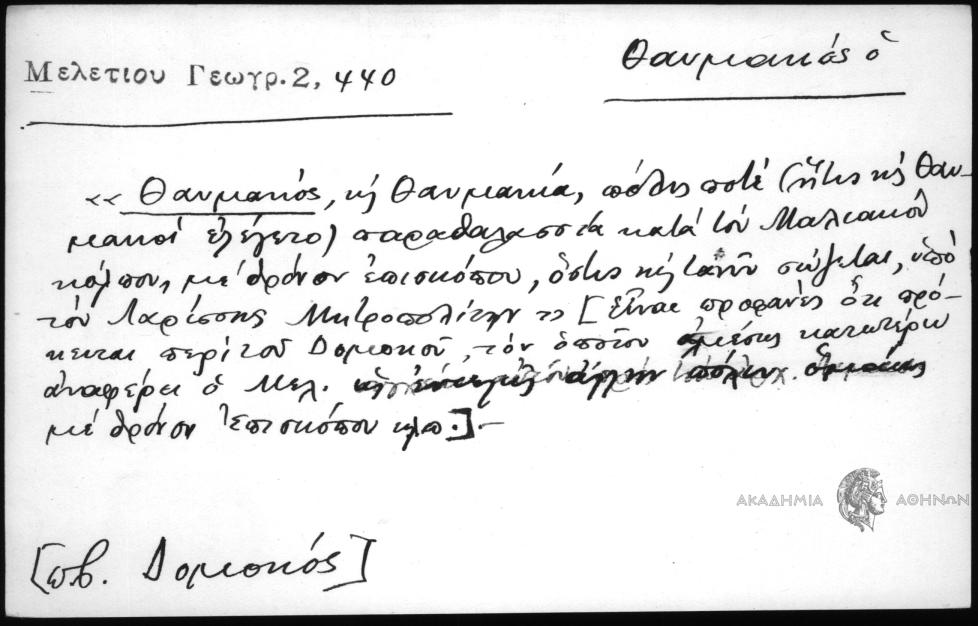 Μελετιου Γεωγρ. 2, 440
Θαυμακός ὁ
«Θαυμακός, κ̀ Θαυμακία, πόλις ποτέ (ἥτις κ̀ Θαυ-
μακοί ἐλέγετο) παραθαλασσία κατά τόν Μαλιακόν
κόλπον, μέ θρόνον ἐπισκόπου, ὅστις κ̀ τανῦν σώζεται, ὑπό
τόν Λαρίσσης Μητροπολίτην» [Εἶναι προφανές ὅτι πρό-
κειται περί τοῦ Δομοκοῦ, τόν ὁποῖον ἀμέσως κατωτέρω
ἀναφέρει ὁ Μελ.
μέ θρόνον Ἐπισκόπου κλπ.].-
ΑΚΑΔΗΜΙΑ ΑΘΗΝΩΝ
[πβ. Δομοκός]